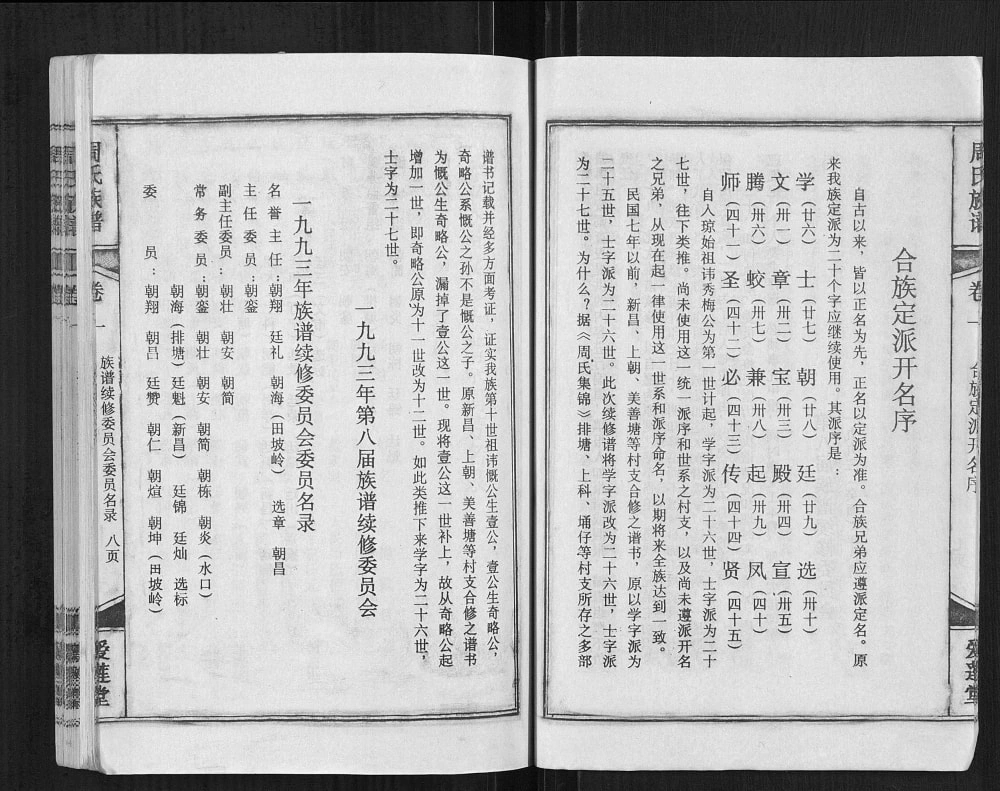 周氏族谱
卷一
合族定派开名序
爱莲堂
合族定派开名序
自古以来，皆以正名为先，正名以定派为准。合族兄弟应遵派定名。原
来我族定派为二十个字应继续使用。其派序是：
学（廿六）士（廿七）朝（廿八）廷（廿九）选（卅十）
文（卅一）章（卅二）宝（卅三）殿（卅四）宣（卅五）
腾（卅六）蛟（卅七）兼（卅八）起（卅九）凤（四十）
师（四十一）圣（四十二）必（四十三）传（四十四）贤（四十五）
自人琼始祖讳秀梅公为第一世计起，学字派为二十六世，士字派为二十
七世，往下类推。尚未使用这一统一派序和世系之村支，以及尚未遵派开名
之兄弟，从现在起一律使用这一世系和派序命名，以期将来全族达到一致。
民国七年以前，新昌、上朝、美善塘等村支合修之谱书，原以学字派为
二十五世，士字派为二十六世。此次续修谱将学字派改为二十六世，士字派
为二十七世。为什么？据《周氏集锦》排塘、上科、埇仔等村支所存之多部
谱书记载并经多方面考证，证实我族第十世祖讳慨公生壹公，壹公生奇略公，
奇略公系慨公之孙不是慨公之子。原新昌、上朝、美善塘等村支合修之谱书
为慨公生奇略公，漏掉了壹公这一世。现将壹公这一世补上，故从奇略公起
增加一世，即奇略公原为十一世改为十二世。如此类推下来学字为二十六世，
士字为二十七世。
一九九三年第八届族谱续修委员会
一九九三年族谱续修委员会委员名录
名誉主任：朝翔 廷礼 朝海（田坡岭） 选章 朝昌
主任委员：朝銮
副主任委员：朝壮 朝安 朝简
常务委员：朝銮 朝壮 朝安 朝简 朝栋 朝炎（水口）
朝海（排塘）廷魁（新昌） 廷锦 廷灿 选标
委员：朝翔 朝昌 廷赞 朝仁 朝煊 朝坤（田坡岭）
周氏族谱
卷一
族谱续修委员会委员名录 八页
爱莲堂